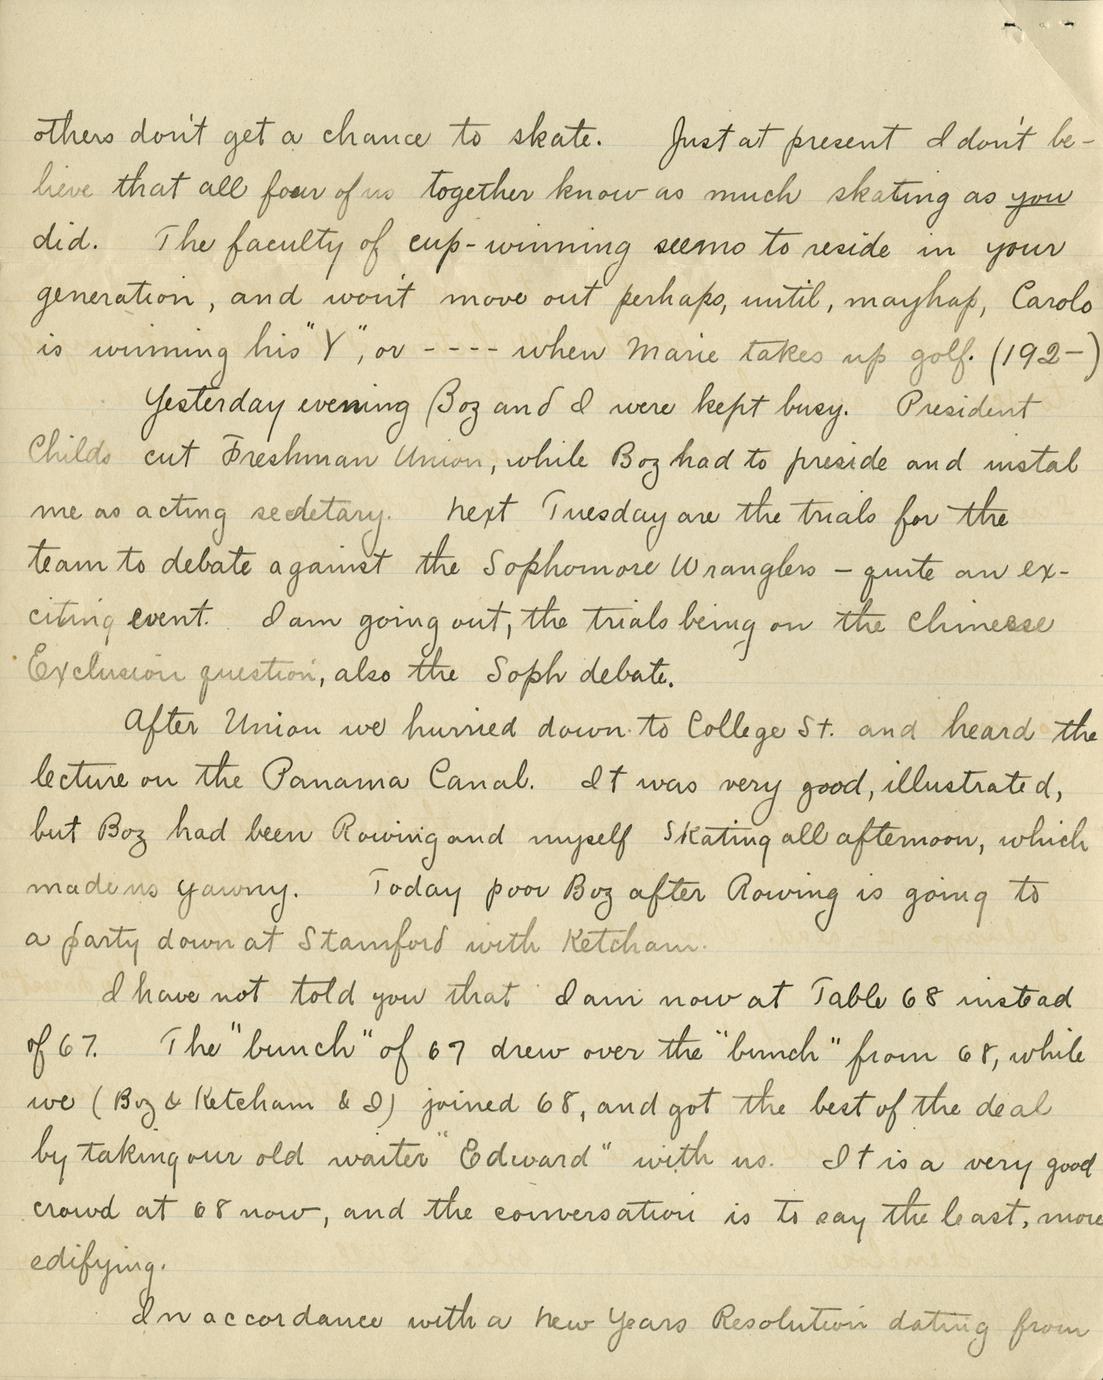 others don't get a chance to skate. Just at present I don't be-
lieve that all four of us together know as much skating as you
did. The faculty of cup-winning seems to reside in your
generation, and won't move out perhaps, until, mayhap, Carolo
is winning his "Y", or - - - - when Marie takes up golf. (192-)
Yesterday evening Boz and I were kept busy. President
Childs cut Freshman Union, while Boz had to preside and instal
me as acting secretary. Next Tuesday are the trials for the
team to debate against the Sophomore Wranglers - quite an ex-
citing event. I am going out, the trials being on the Chinese
Exclusion question, also the Soph debate.
After Union we hurried down to College St. and heard the
lecture on the Panama Canal. It was very good, illustrated,
but Boz had been Rowing and myself Skating all afternoon, which
made us yawny. Today poor Boz after Rowing is going to
a party down at Stamford with Ketcham.
I have not told you that I am now at Table 68 instead
of 67. The "bunch" of 67 drew over the "bunch" from 68, while
we (Boz & Ketcham & I) joined 68, and got the best of the deal
by taking our old waiter "Edward" with us. It is a very good
crowd at 68 now, and the conversation is to say the least, more
edifying.
In accordance with a New Years Resolution dating from